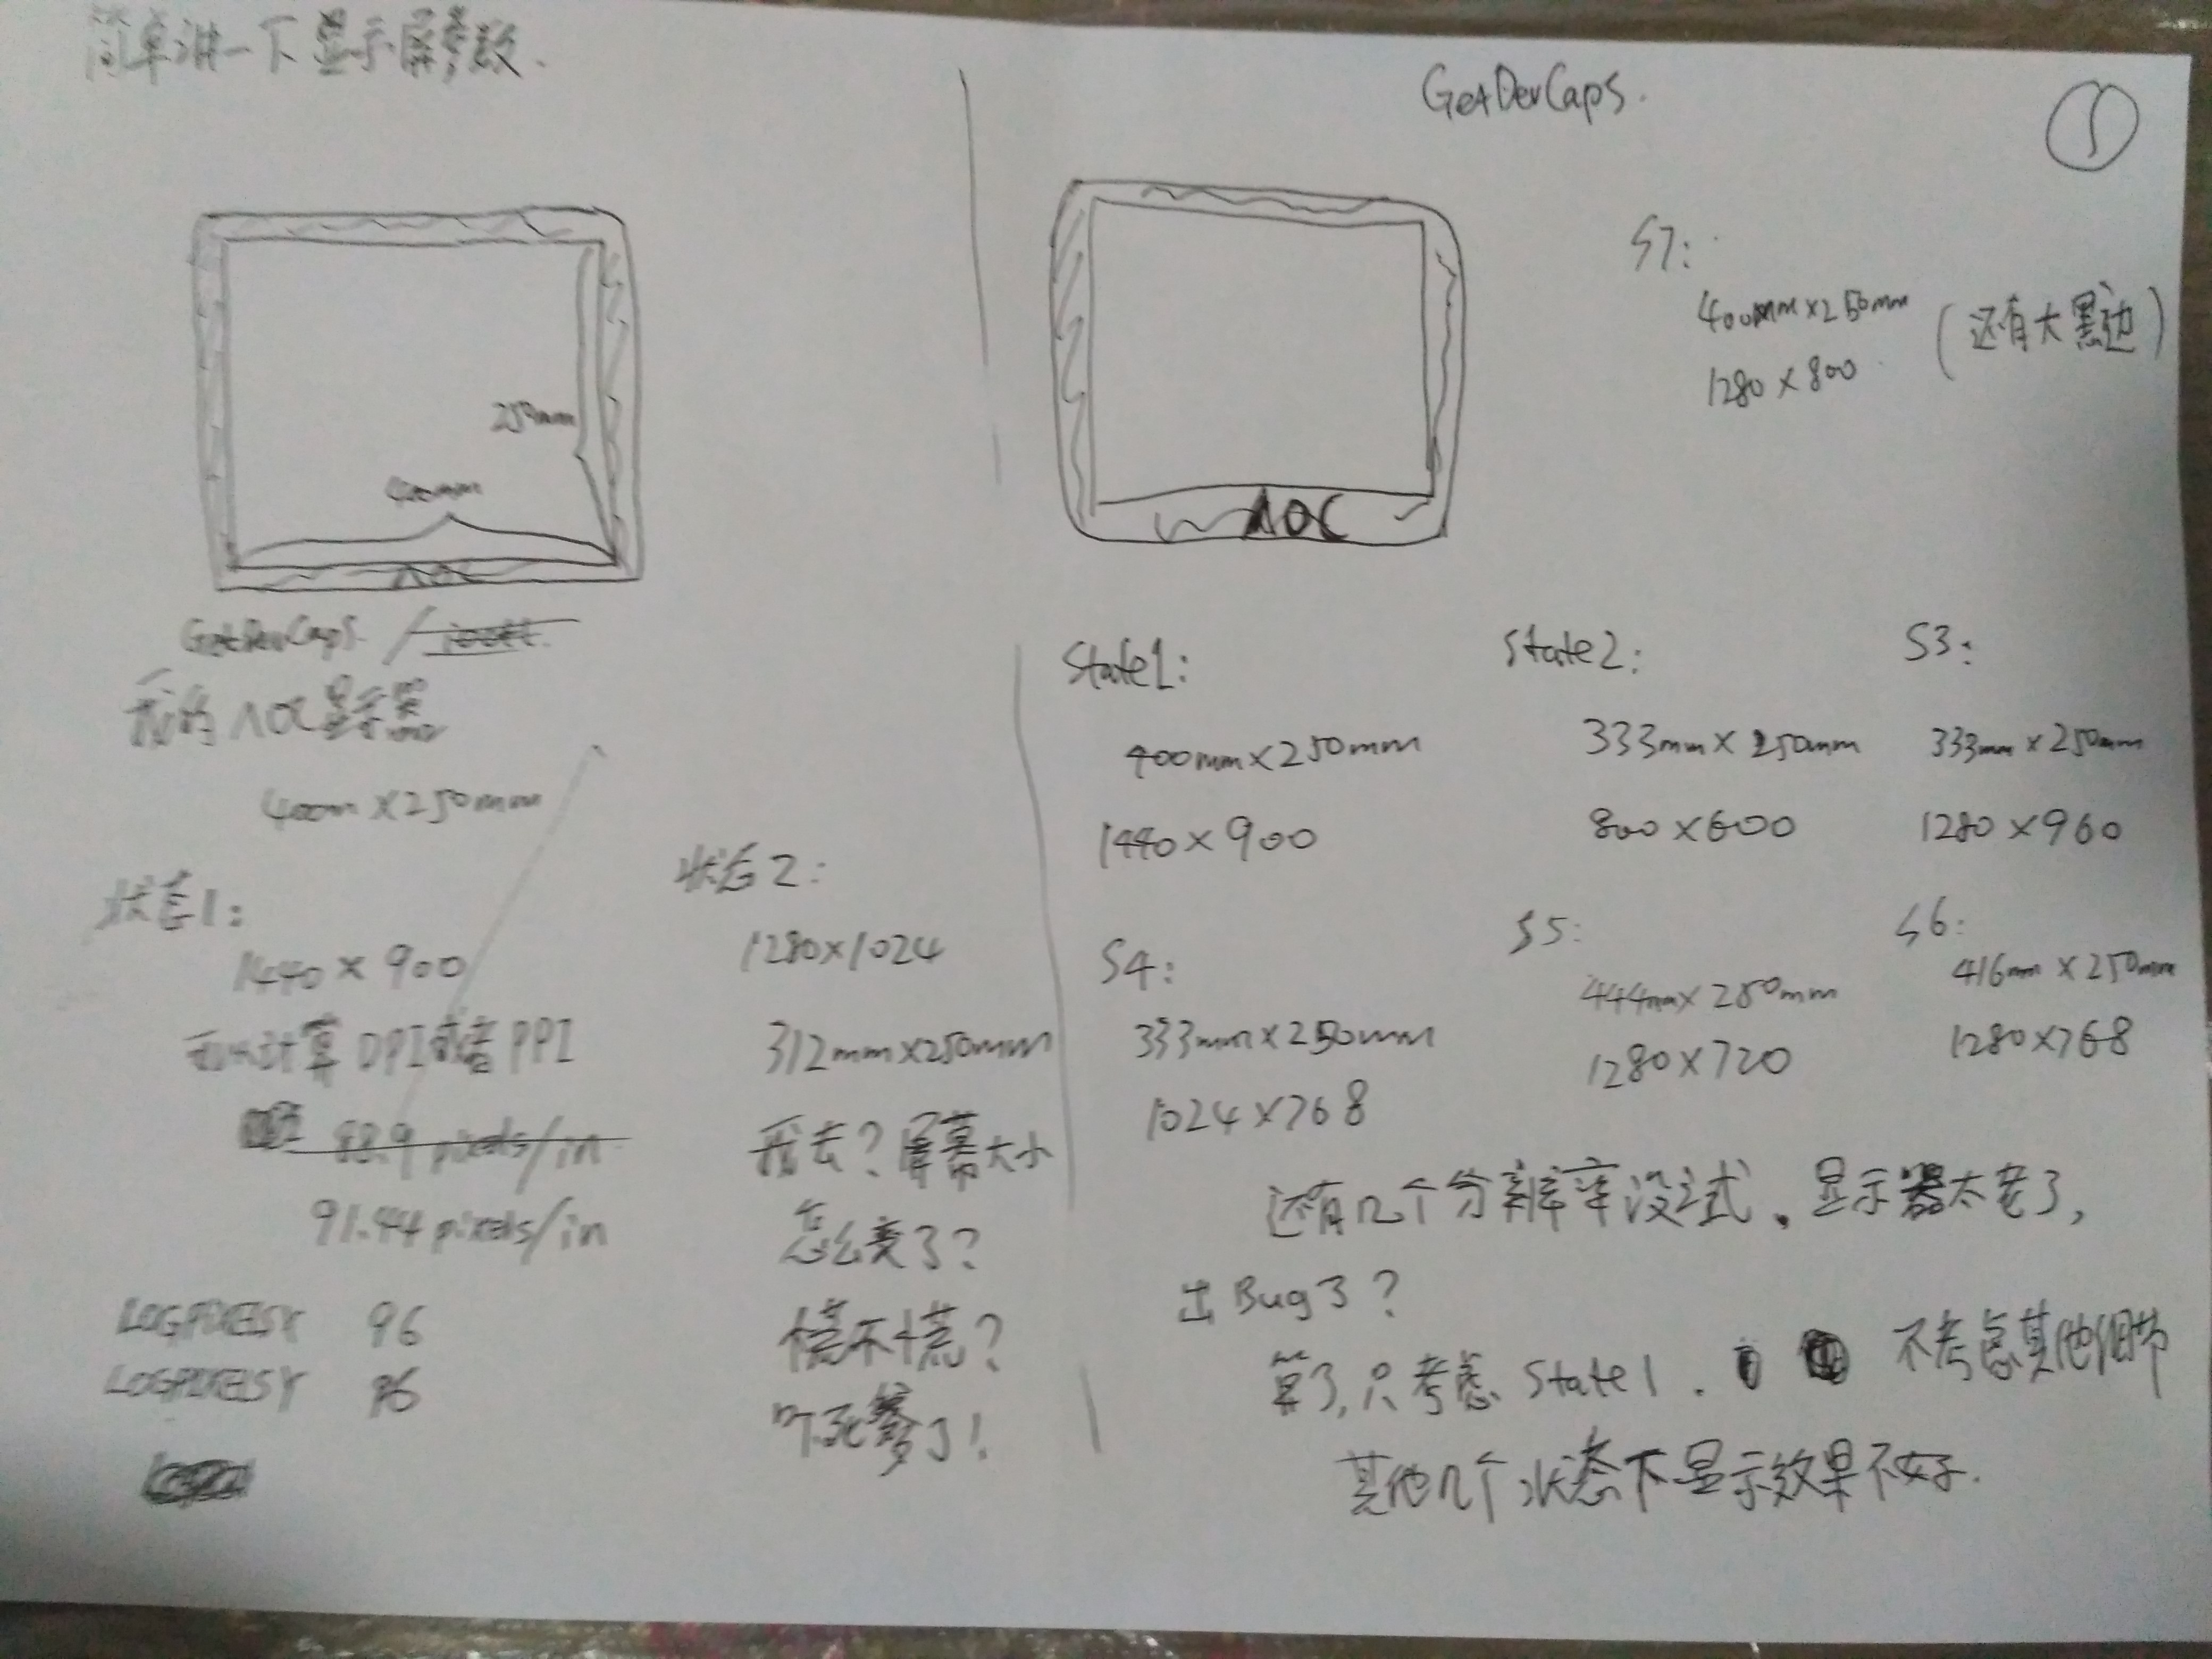 简单讲一下显示屏参数.
250mm
400mm
AOC
GetDevCaps. /
我的AOC显示器
400m×250mm
状态1:
1440×900
可以计算DPI或者PPI
88.9 pixels/in
91.44 pixels/in
LOGPIXELSX 96
LOGPIXELSY 96
状态2:
1280×1024
312mm×250mm
我去?屏幕大小
怎么变了?
慌不慌?
吓死爹了!
GetDevCaps.
5
AOC
S7:
400mm×250mm
1280×800
(还有大黑边)
State1:
400mm×250mm
1440×900
State2:
333mm×250mm
800×600
S3:
333mm×250mm
1280×960
S4:
333mm×250mm
1024×768
S5:
444mm×250mm
1280×720
S6:
416mm×250mm
1280×768
还有几个分辨率没试。显示器太老了,
出Bug了?
算了,只考虑State1. 不考虑其他细节
其他几个状态下显示效果不好.